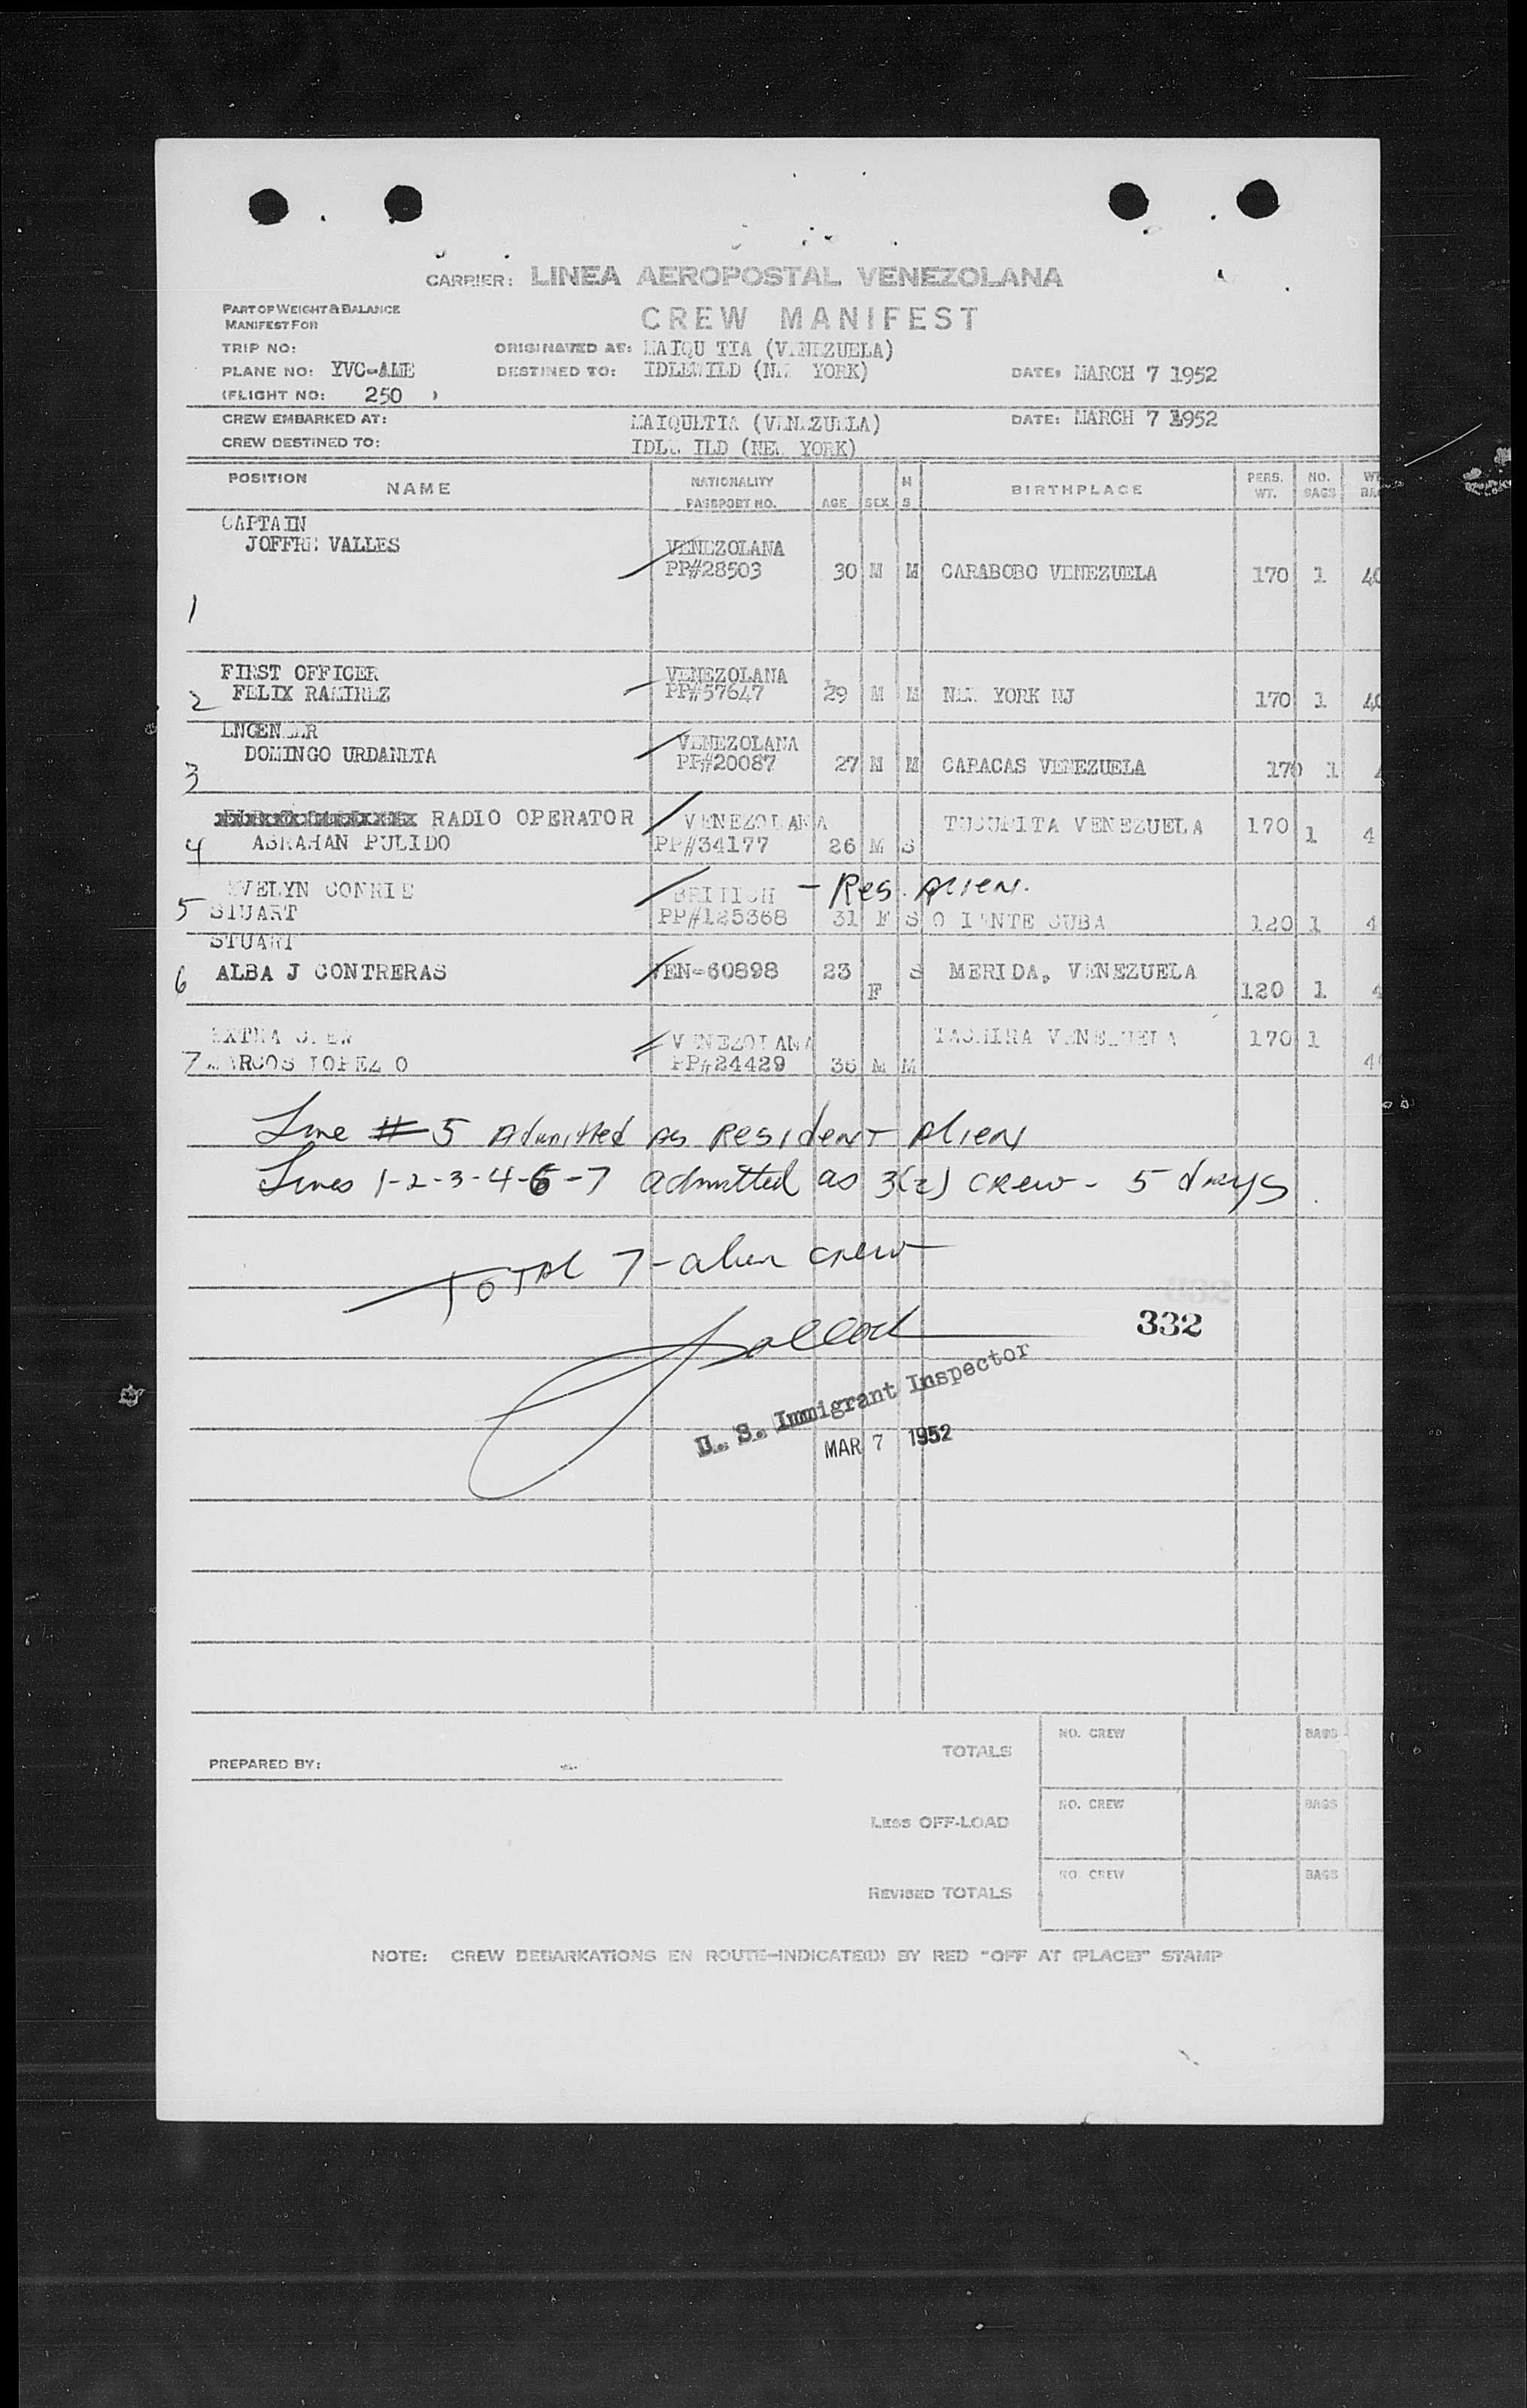 CARRIER: LINEA AEROPOSTAL VENEZOLANA
PART OF WEIGHT & BALANCE
MANIFEST FOR
CREW MANIFEST
TRIP NO: ORIGINATED AT: MAIQU TIA (VENEZUELA)
PLANE NO: YVC-AME DESTINED TO: IDLEWILD (NEW YORK) DATE: MARCH 7 1952
(FLIGHT NO: 250 )
CREW EMBARKED AT: MAIQUETIA (VENEZUELA) DATE: MARCH 7 1952
CREW DESTINED TO: IDLE ILD (NEW YORK)
POSITION NAME NATIONALITY PASSPORT NO. AGE SEX M S BIRTHPLACE PERS. WT. NO. BAGS WT
CAPTAIN
JOFFRE VALLES VENEZOLANA
PP#28503 30 M M CARABOBO VENEZUELA 170 1 40
1
FIRST OFFICER VENEZOLANA
2 FELIX RAMIREZ PP#57647 29 M M NEW YORK NJ 170 1 40
ENGENEER VENEZOLANA
3 DOMINGO URDANETA PP#20087 27 M M CARACAS VENEZUELA 170 1
RADIO OPERATOR VENEZOLANA VENEZUELA 170 1
4 ABRAHAN PULIDO PP#34177 26 M S 4
EVELYN CONRIE BRITICH - Res. Alien.
5 STUART PP#125368 31 F S O IENTE CUBA 120 1 4
STUART
6 ALBA J CONTRERAS VEN-60898 23 F S MERIDA, VENEZUELA 120 1 4
EXTRA CREW VENEZOLANA TACHIRA VENEZUELA 170 1
7 MARCOS LOPEZ O PP#24429 36 M M 4
Line # 5 Admitted as Resident Alien
Lines 1-2-3-4-6-7 admitted as 3(2) crew - 5 days
Total 7 - alien crew
332
U. S. Immigrant Inspector
MAR 7 1952
PREPARED BY:
TOTALS NO. CREW BAGS
LESS OFF-LOAD NO. CREW BAGS
REVISED TOTALS NO. CREW BAGS
NOTE: CREW DEBARKATIONS EN ROUTE-INDICATE(D) BY RED "OFF AT (PLACE)" STAMP